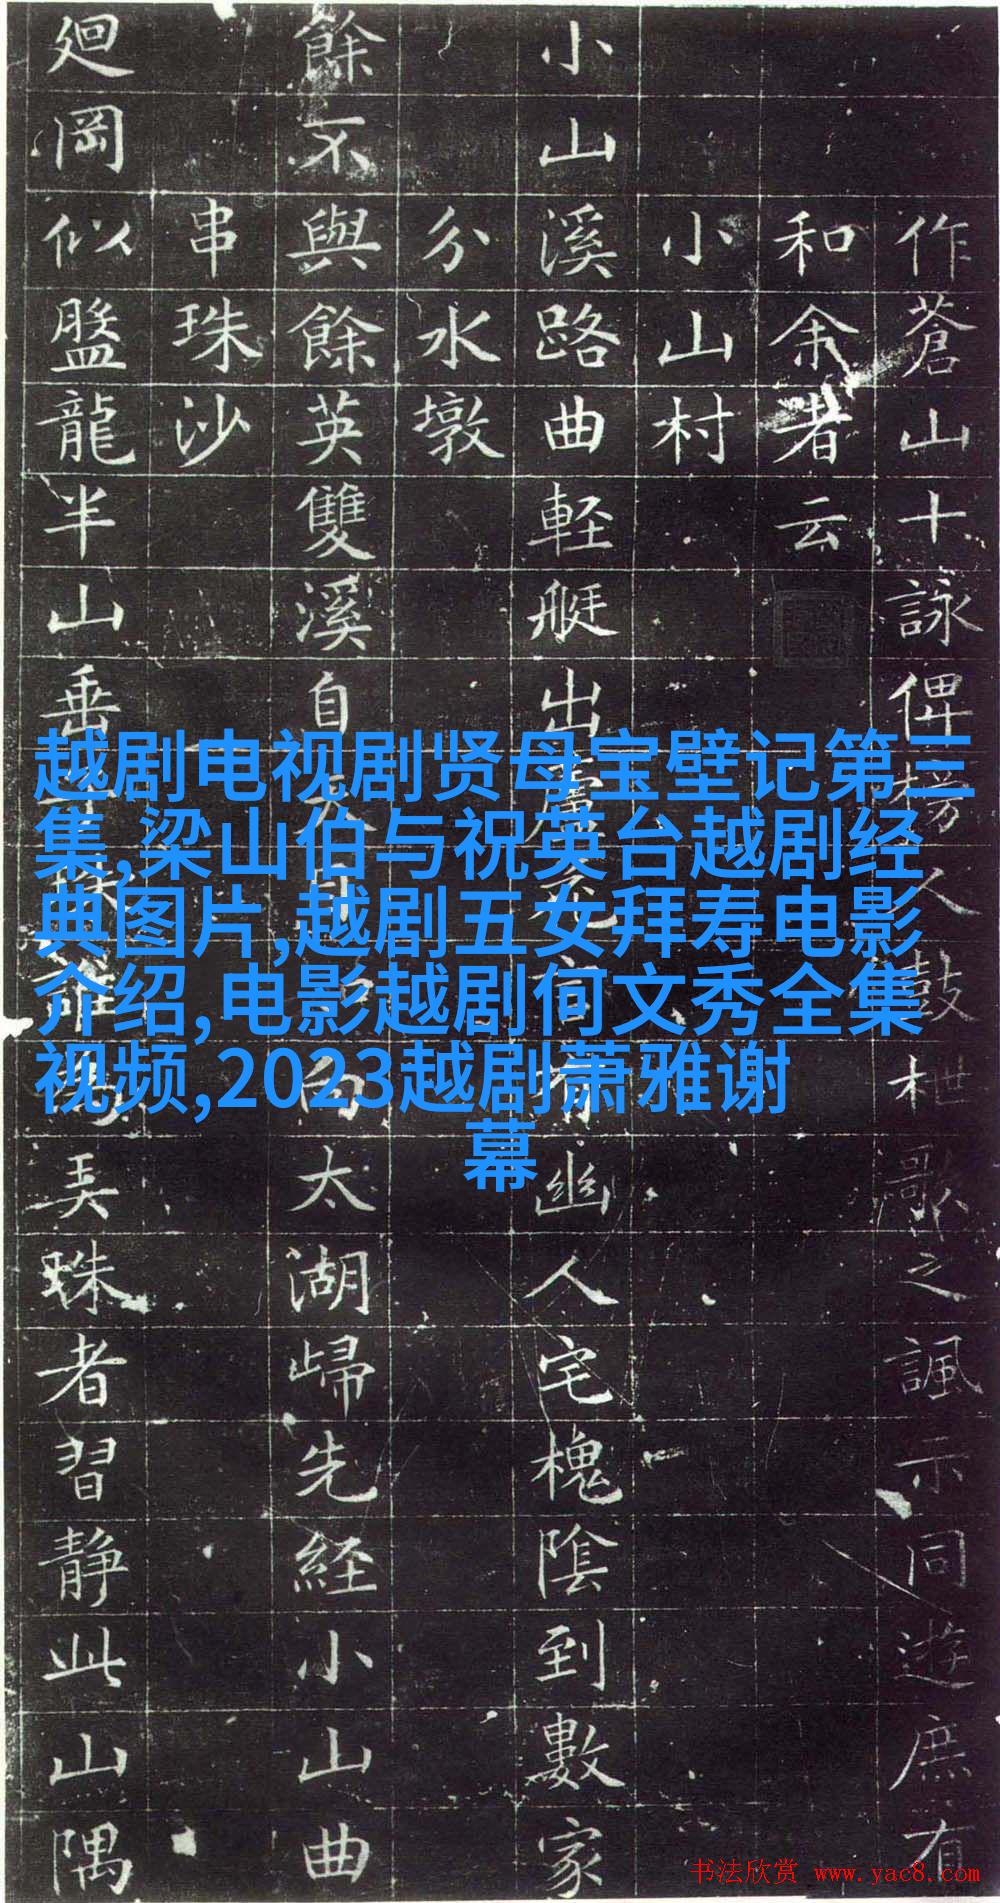 作蒼山十詠俾榜人鼓枻歌之諷示同遊庶有
和余者云
小山村
小山溪路曲軽艇出幽人宅槐陰到數家
分水墩
餘不與餘英雙溪自太湖歸先経小山曲
串珠沙
廻岡似盤龍半山垂弄珠者習静此山隅
越剧电视剧贤母宝壁记第三
集,梁山伯与祝英台越剧经
典图片,越剧五女拜寿电影
介绍,电影越剧何文秀全集
视频,2023越剧萧雅谢
幕
书法欣赏 www.yac8.com